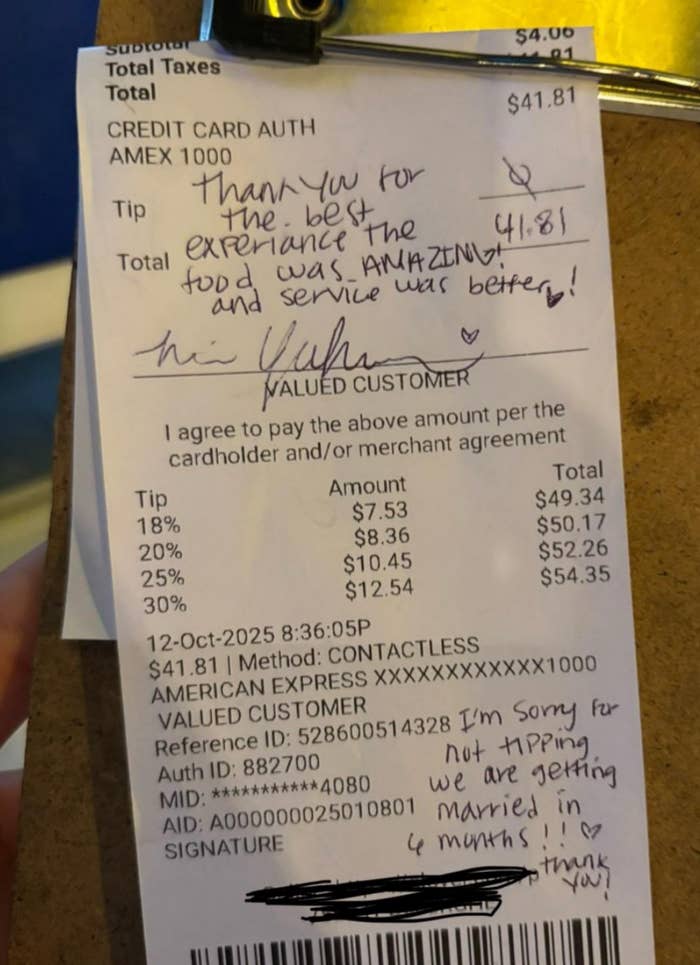 Subtotal
$4.06
Total Taxes
Total $41.81
CREDIT CARD AUTH
AMEX 1000
Tip
Total 41.81
Thank you for
the best
experiance the
food was AMAZING!
and service was better!
VALUED CUSTOMER
I agree to pay the above amount per the
cardholder and/or merchant agreement
Tip Amount Total
18% $7.53 $49.34
20% $8.36 $50.17
25% $10.45 $52.26
30% $12.54 $54.35
12-Oct-2025 8:36:05P
$41.81 | Method: CONTACTLESS
AMERICAN EXPRESS XXXXXXXXXXXX1000
VALUED CUSTOMER
Reference ID: 528600514328
Auth ID: 882700
MID: ***********4080
AID: A000000025010801
SIGNATURE
I'm sorry for
not tipping
we are getting
married in
6 months!! ♡
thank
you!